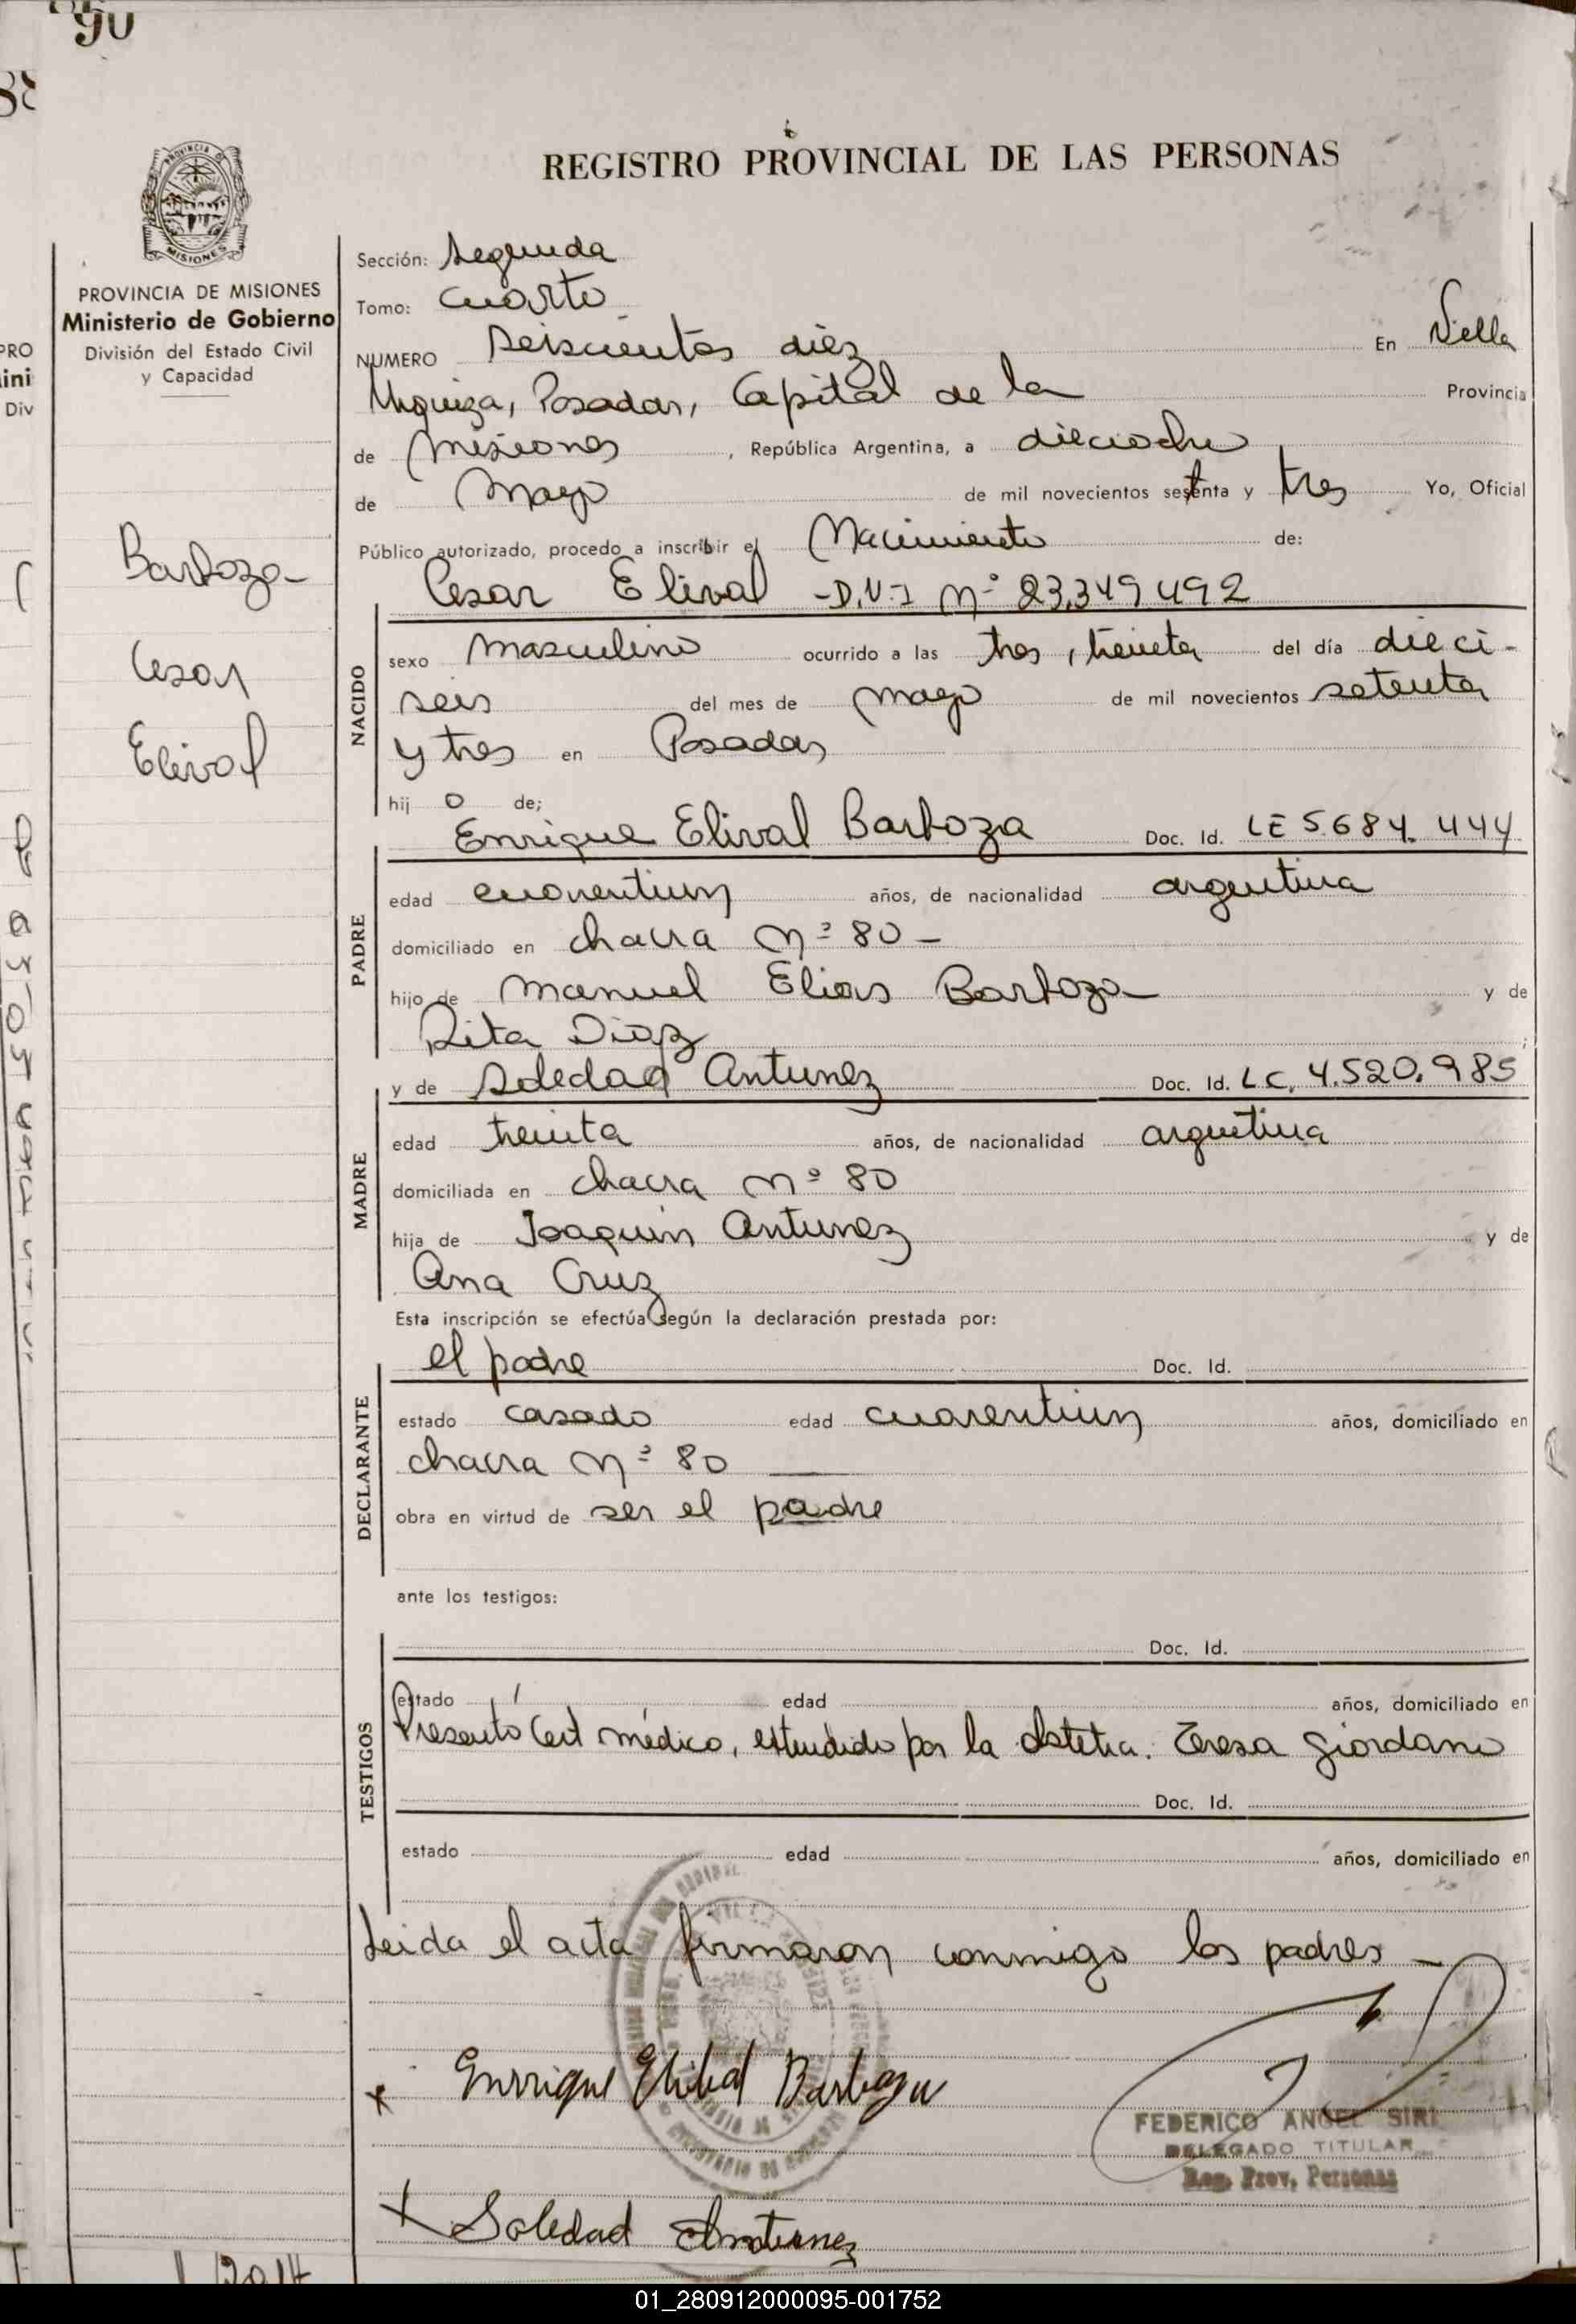 90
REGISTRO PROVINCIAL DE LAS PERSONAS
PROVINCIA DE
MISIONES
PROVINCIA DE MISIONES
Ministerio de Gobierno
División del Estado Civil
y Capacidad
Barboza
Cesar
Elival
Sección: Segunda
Tomo: Cuarto
NUMERO Seiscientos diez En Villa
Urquiza, Posadas, Capital de la Provincia
de Misiones, República Argentina, a dieciocho
de Mayo de mil novecientos setenta y tres Yo, Oficial
Público autorizado, procedo a inscribir el Nacimiento de:
Cesar Elival -D.N.I Nº 23.349492
NACIDO
sexo masculino ocurrido a las tres, treinta del día dieci-
seis del mes de mayo de mil novecientos setenta
y tres en Posadas
hij o de;
Enrique Elival Barboza Doc. Id. LE 5684.444
PADRE
edad cuarentiun años, de nacionalidad argentina
domiciliado en chacra Nº 80 -
hijo de Manuel Elias Barboza y de
Rita Diaz;
y de Soledad Antunez Doc. Id. L.C. 4.520.985
MADRE
edad treinta años, de nacionalidad argentina
domiciliada en chacra Nº 80
hija de Joaquin Antunez y de
Ana Cruz
Esta inscripción se efectúa según la declaración prestada por:
el padre Doc. Id.
DECLARANTE
estado casado edad cuarentiun años, domiciliado en
chacra Nº 80
obra en virtud de ser el padre
ante los testigos:
Doc. Id.
TESTIGOS
estado edad años, domiciliado en
Presentó Cert médico, estendido por la obstetra. Teresa Giordano
Doc. Id.
estado edad años, domiciliado en
Leida el acta firmaron conmigo los padres -
x Enrrique Elibal Barboza
FEDERICO ANGEL SIRI
DELEGADO TITULAR
Reg. Prov. Personas
x Soledad Antunez
01_280912000095-001752